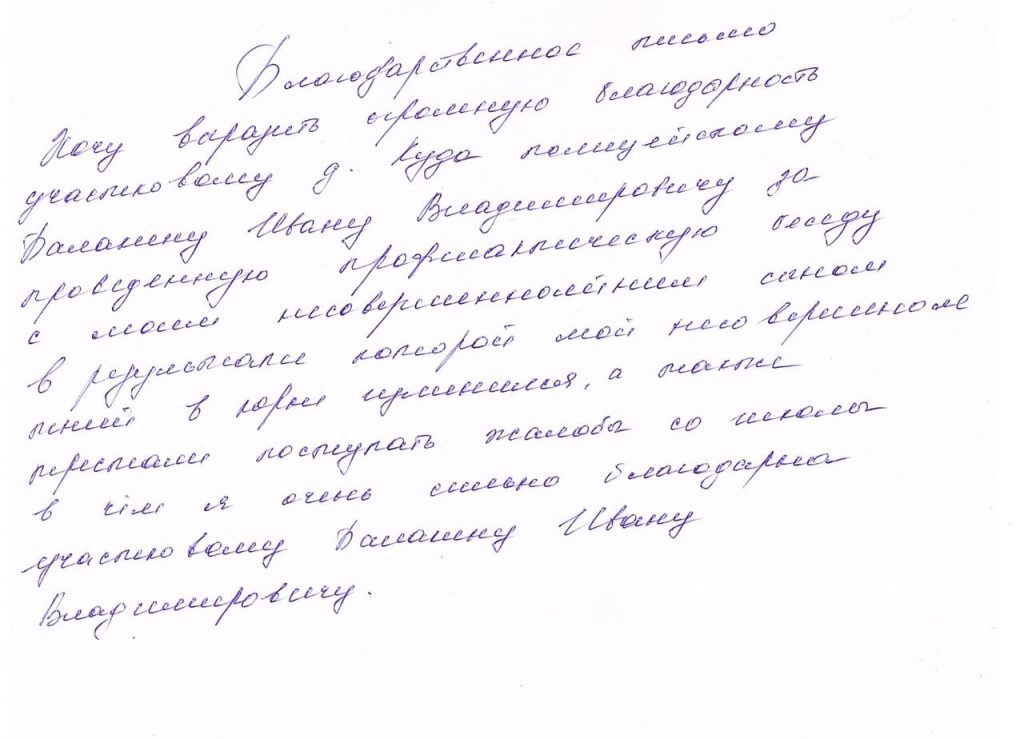 Благодарственное письмо
Хочу выразить огромную благодарность
участковому д. Куда полицейскому
Баланину Ивану Владимировичу за
проведенную профилактическую беседу
с моим несовершеннолетним сыном
в результате которой мой несовершенноле
тний в корне изменился, а также
перестали поступать жалобы со школы
в чём я очень сильно благодарна
участковому Баланину Ивану
Владимировичу.